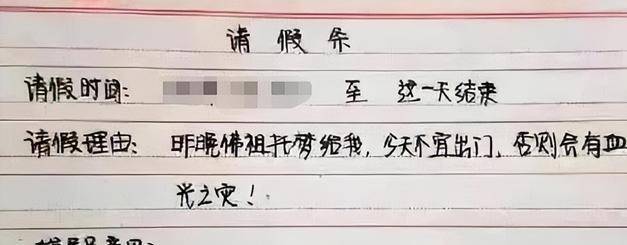 请假条
请假时间: 至 这一天结束
请假理由: 昨晚佛祖托梦给我,今天不宜出门,否则会有血
光之灾!